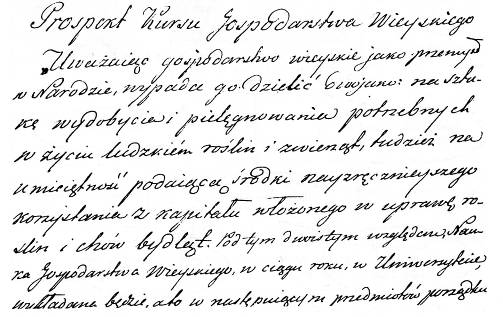 Prospekt Kursu Gospodarstwa Wieyskiego
„Uważaiąc gospodarstwo wieyskie jako przemysł
w Narodzie, wypada go dzielić dwojako: na sztu-
kę wydobycia i pielęgnowania potrzebnych
w życiu ludzkiém roślin i zwierząt, tudzież na
umieiętność podaiącą środki nayzręcznieyszego
korzystania z kapitału włożonego w uprawę ro-
slin i chów bydląt. Pod tym dwoistym względem, Nau-
ka Gospodarstwa Wieyskiego, w ciągu roku, w Uniwersytecie
wykładana będzie, a to w następuiącym przedmiotów porządku